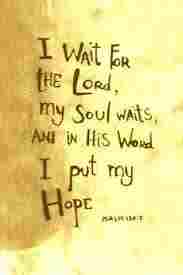 I WAIT FOR
THE LORD,
my Soul WAITS,
AND IN HIS WORD
I put my
HOPE